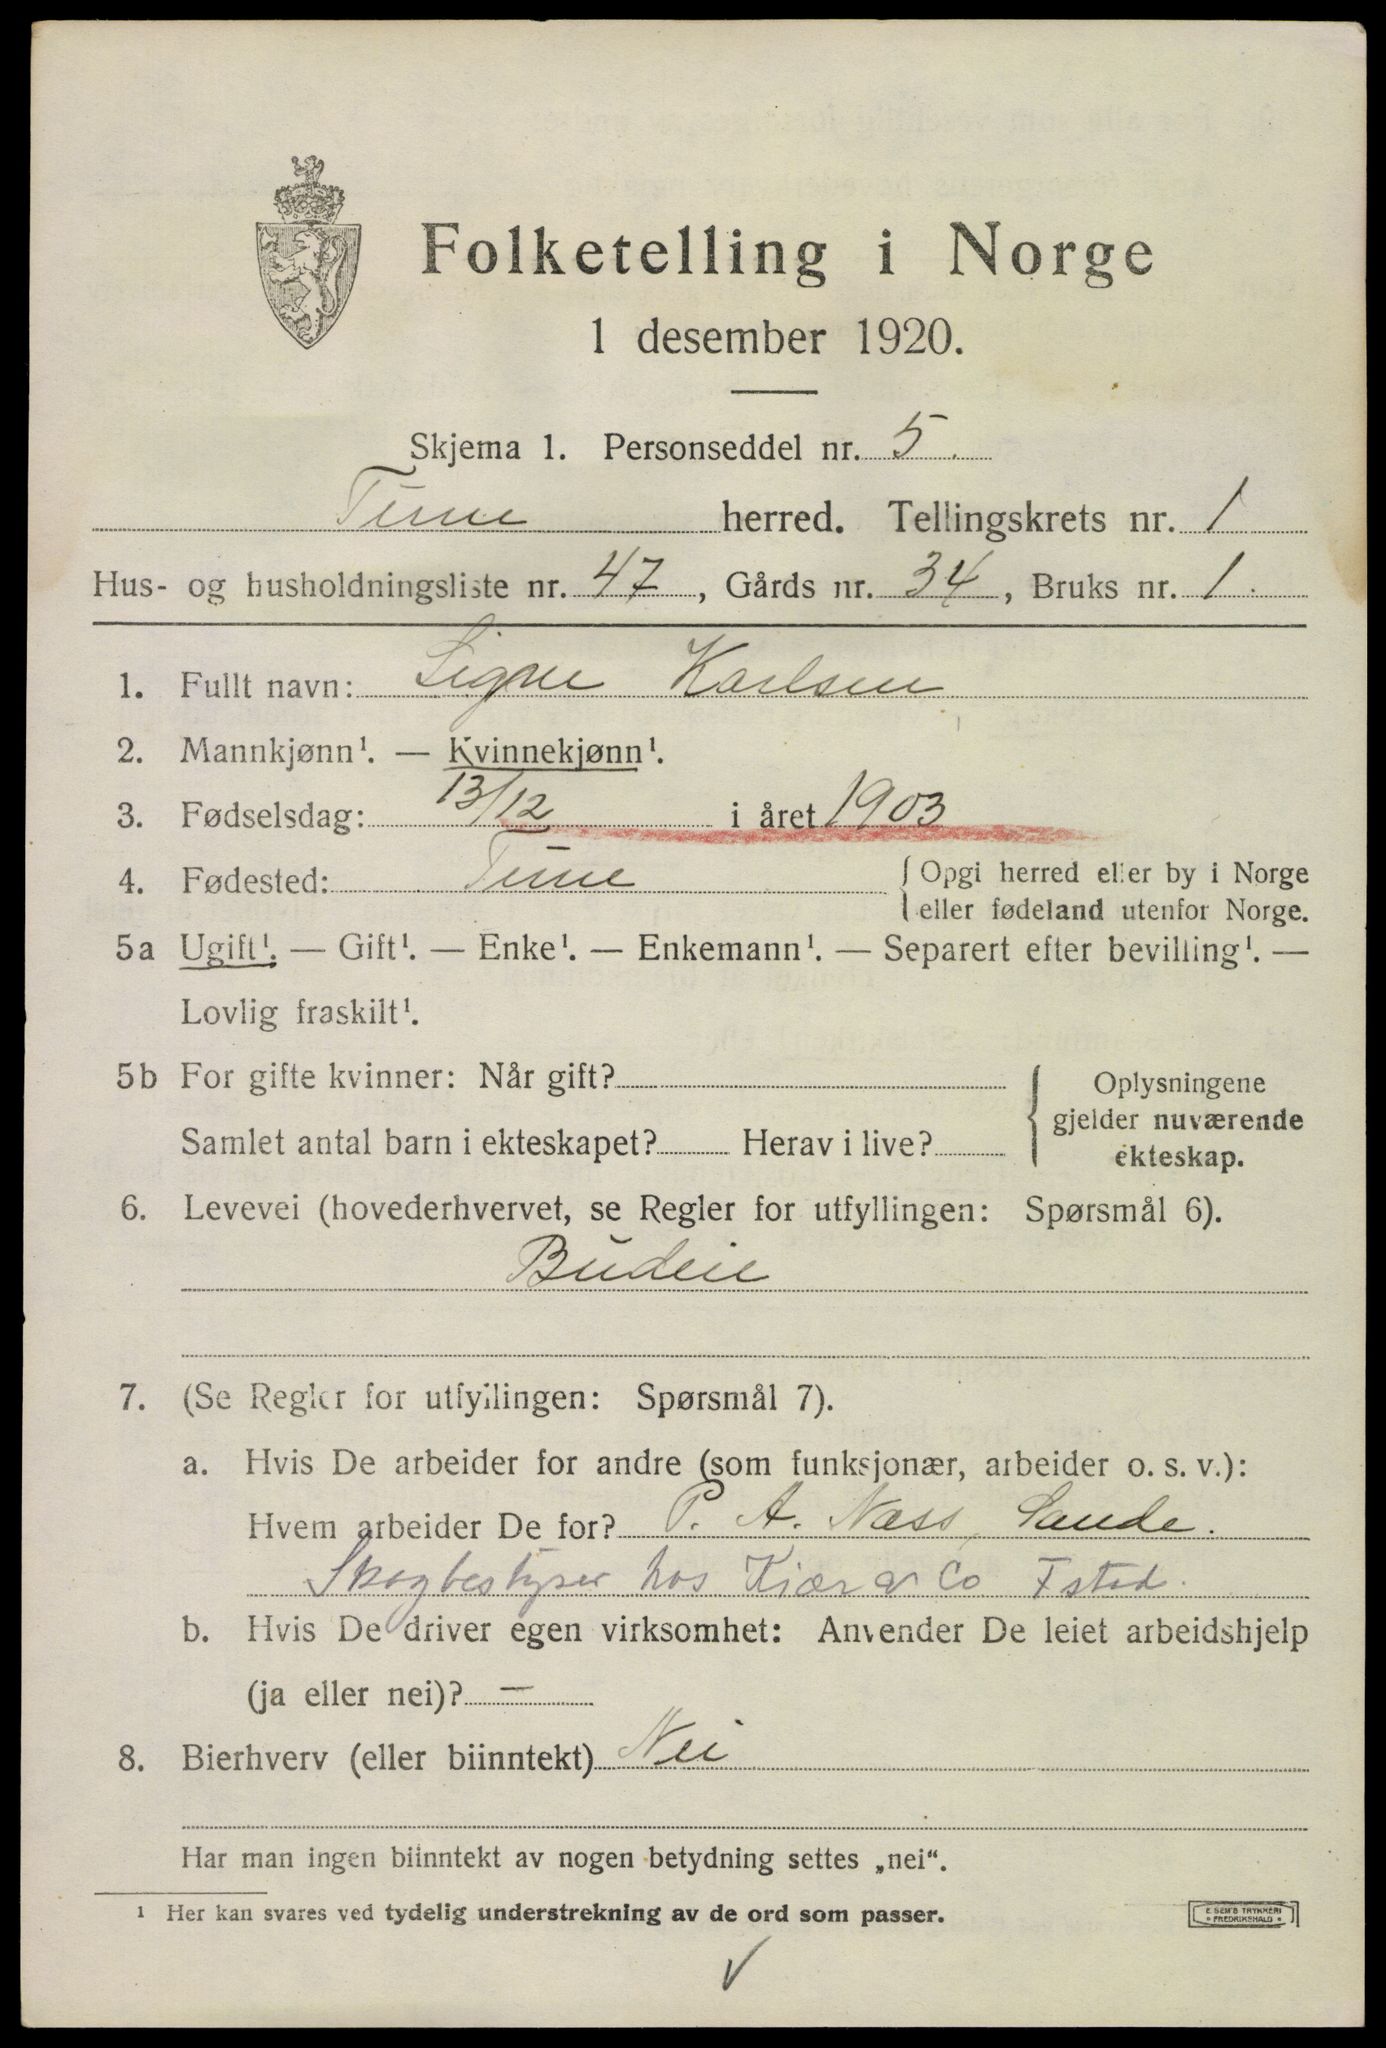 Folketelling i Norge
1 desember 1920.
Skjema 1. Personseddel nr. 5.
Tune herred. Tellingskrets nr. 1
Hus- og husholdningsliste nr. 47, Gårds nr. 34, Bruks nr. 1.
1. Fullt navn: Signe Karlsen
2. Mannkjønn¹. — Kvinnekjønn¹.
3. Fødselsdag: 13/12 i året 1903
4. Fødested: Tune { Opgi herred eller by i Norge
eller fødeland utenfor Norge.
5a Ugift¹. — Gift¹. — Enke¹. — Enkemann¹. — Separert efter bevilling¹. —
Lovlig fraskilt¹.
5b For gifte kvinner: Når gift?
Samlet antal barn i ekteskapet? Herav i live?
{ Oplysningene
gjelder nuværende
ekteskap.
6. Levevei (hovederhvervet, se Regler for utfyllingen: Spørsmål 6).
Budeie
7. (Se Regler for utfyllingen: Spørsmål 7).
a. Hvis De arbeider for andre (som funksjonær, arbeider o. s. v.):
Hvem arbeider De for? P. A. Næss, Sande.
Skogbestyrer hos Kiær & Co Fstad.
b. Hvis De driver egen virksomhet: Anvender De leiet arbeidshjelp
(ja eller nei)? —
8. Bierhverv (eller biinntekt) Nei
Har man ingen biinntekt av nogen betydning settes „nei“.
¹ Her kan svares ved tydelig understrekning av de ord som passer.
E. SEM'S TRYKKERI
* FREDRIKSHALD *